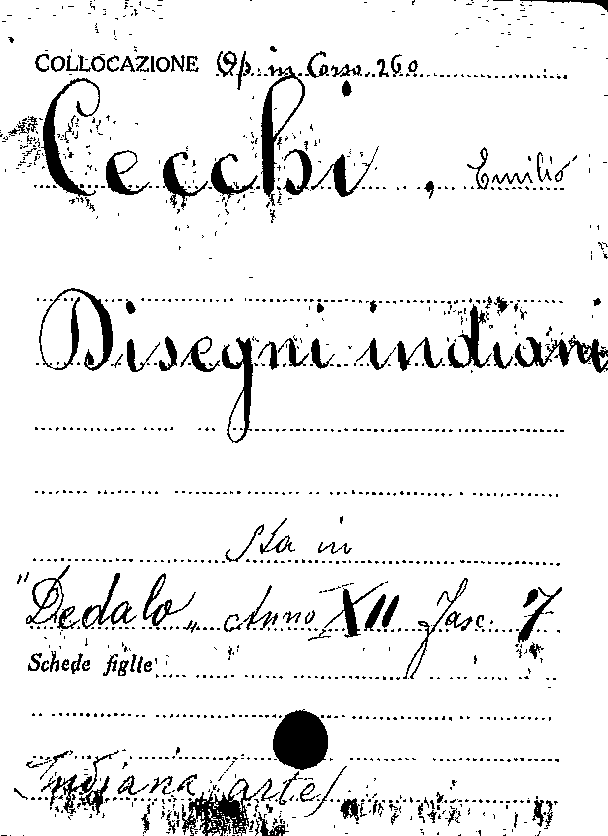 COLLOCAZIONE Op. in Corso 260
Cecchi, Emilio
Disegni indiani
Sta in
"Dedalo" Anno XII Fasc. 7
Schede figlie
Indiana (arte)